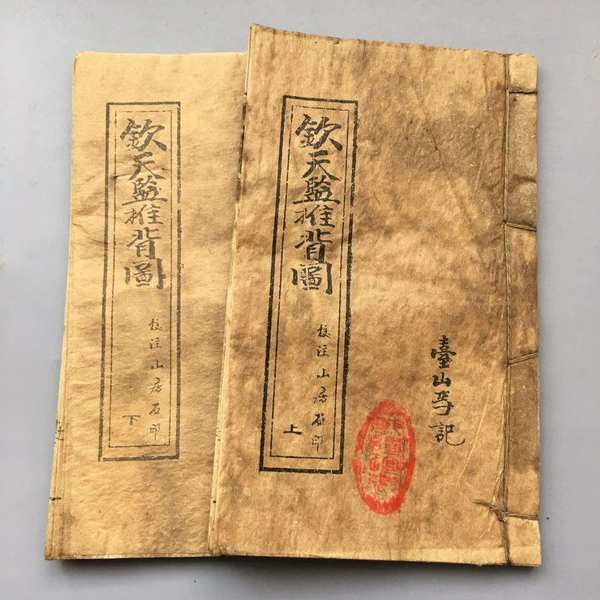 臺山記
欽天監推背圖
校注山房石印
上
欽天監推背圖
校注山房石印
下